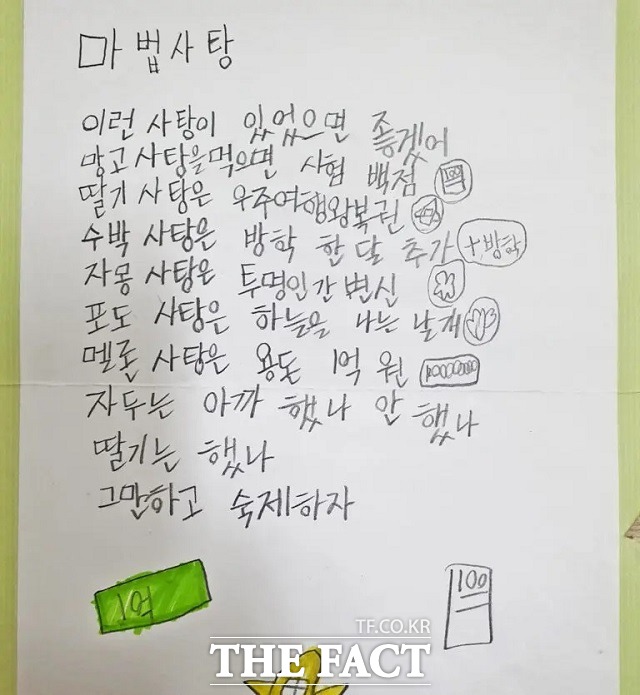 마법사탕
이런 사탕이 있었으면 좋겠어
망고 사탕을 먹으면 시험 백점 100
딸기 사탕은 우주여행왕복권
수박 사탕은 방학 한 달 추가 +방학
자몽 사탕은 투명인간 변신
포도 사탕은 하늘을 나는 날개
멜론 사탕은 용돈 1억 원 100000000
자두는 아까 했나 안 했나
딸기는 했나
그만하고 숙제하자
1억
100
TF.CO.KR
THE FACT